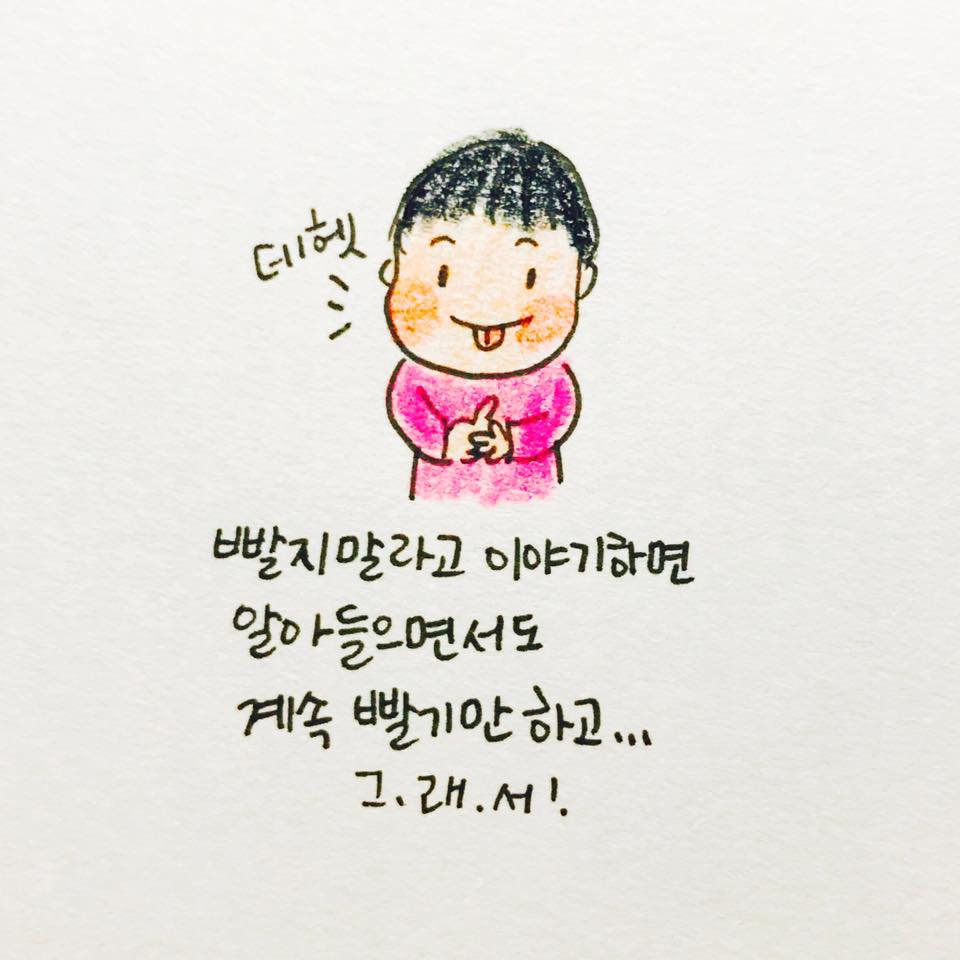 데헷
빨지말라고 이야기하면
알아들으면서도
계속 빨기만 하고...
그.래.서!